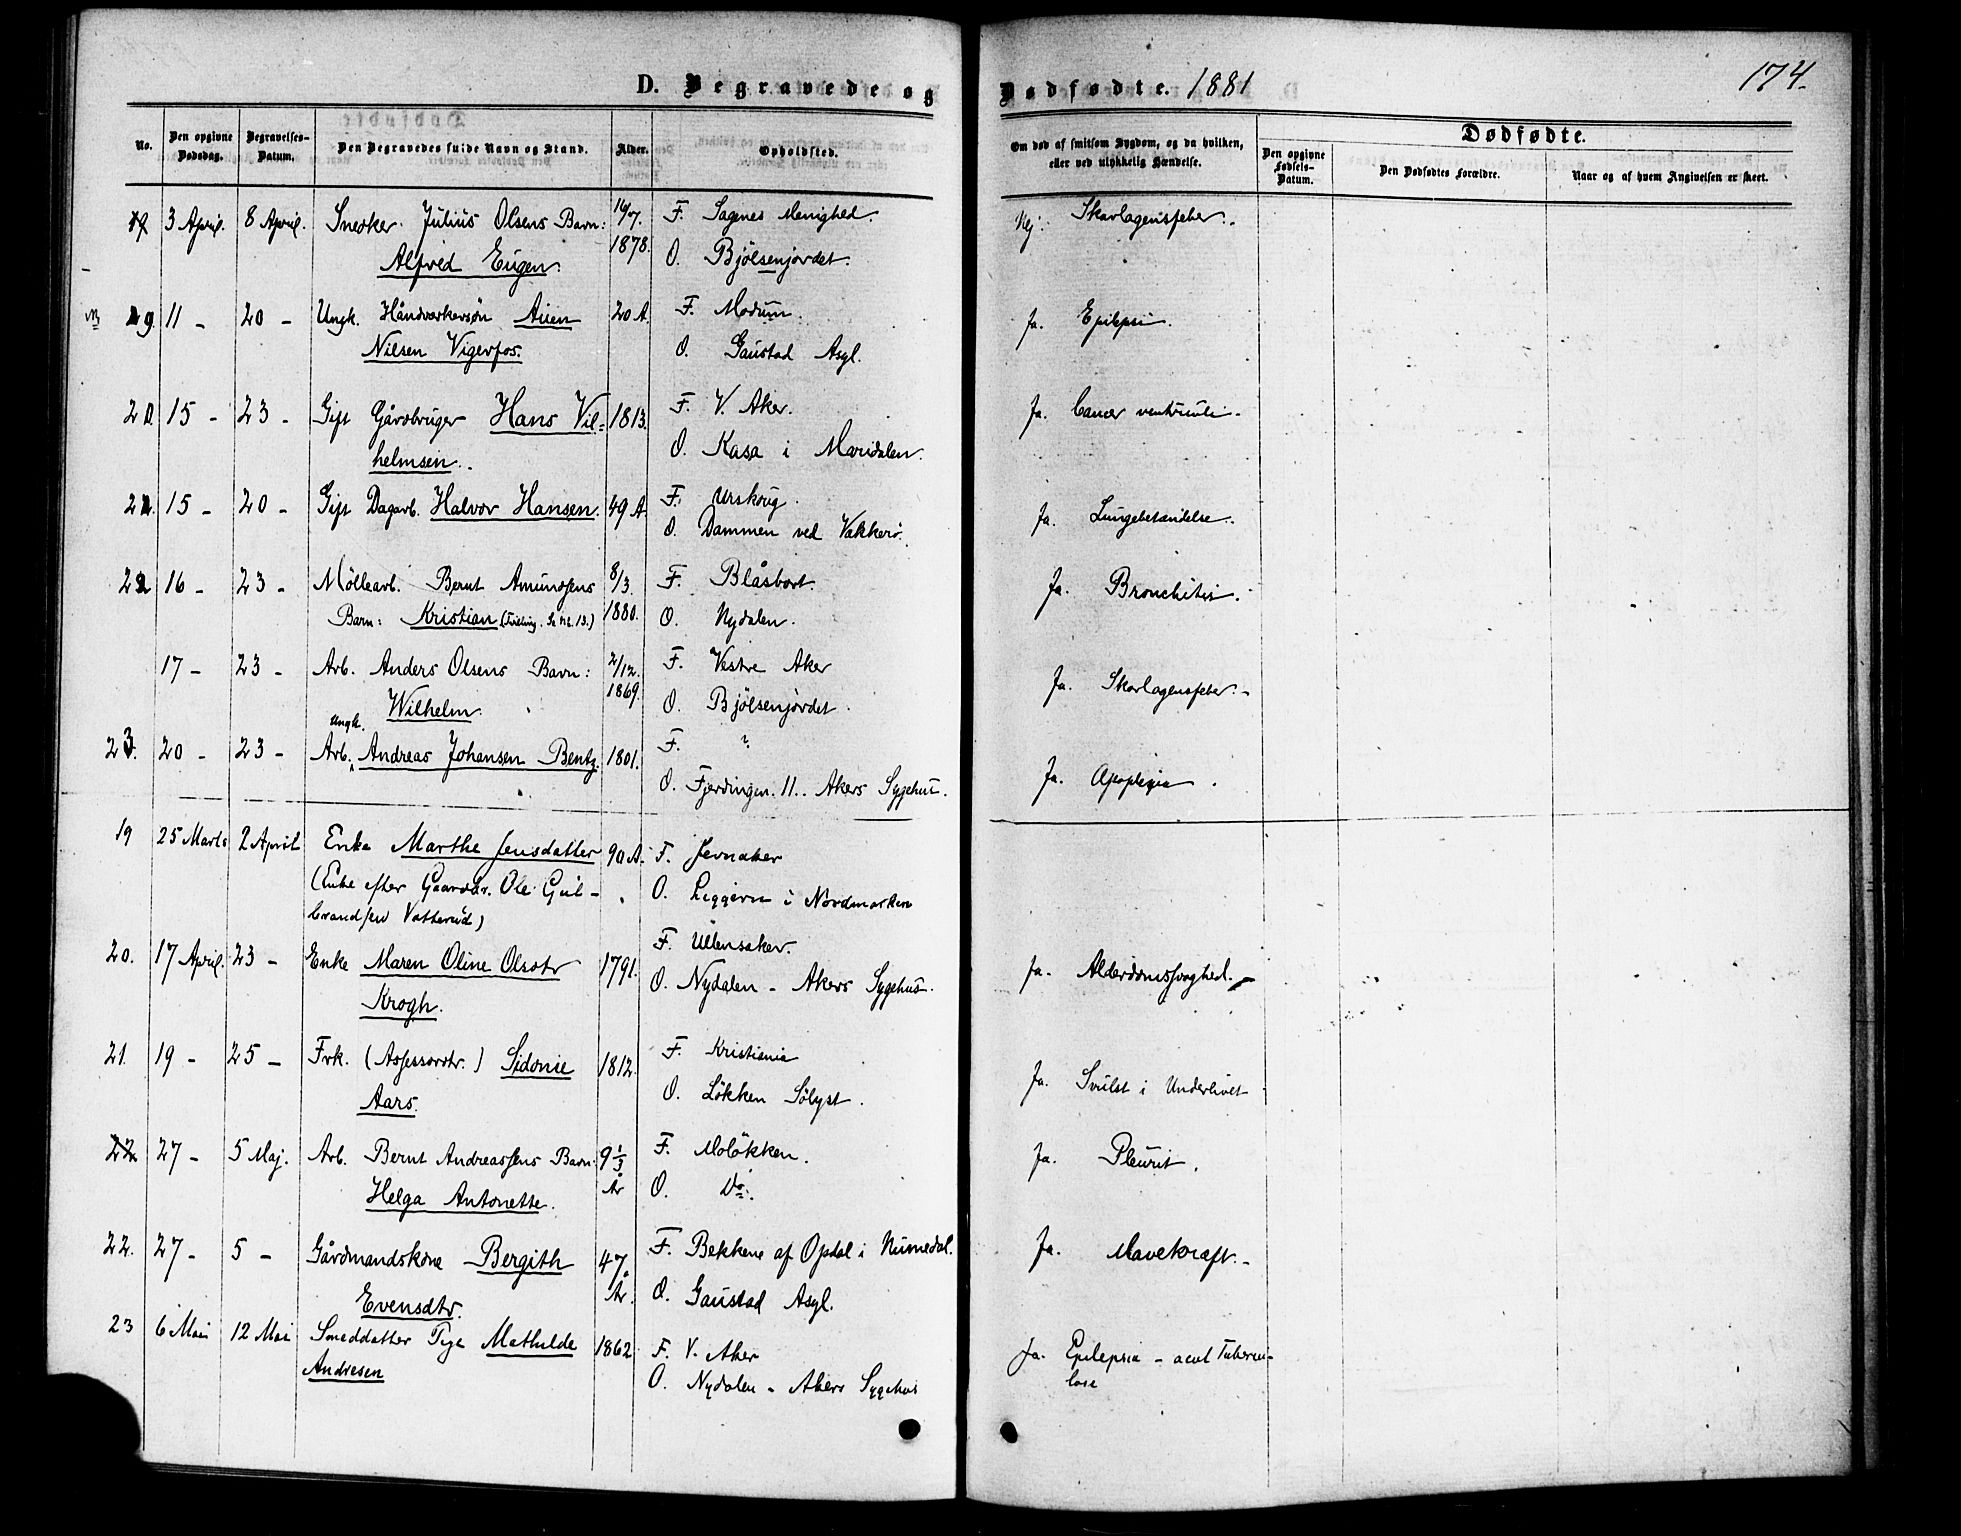 D. Begravede og Dødfødte. 1881
174.
No.
Den opgivne Dødsdag.
Begravelses-Datum.
Den Begravedes fulde Navn og Stand.
Alder.
Opholdssted.
Om død af smitsom Sygdom, og da hvilken, eller ved ulykkelig Hændelse.
Dødfødte.
Den opgivne Fødsels-Datum.
Den Dødfødtes Forældre.
Naar og af hvem Angivelsen er skeet.
3 April. 8 April. Snedker Julius Olsens Barn: F. Sagenes Menighed. Nej. Skarlagensfeber.
Alfred Eugen. 1878. O. Bjölsenjordet.
11 - 20 - Ungk. Håndverkersøn 20 A. F. Modum. Ja. Epilepsi.
Nilsen Vigerfos. O. Gaustad Asyl.
20. 15 - 23 - Gift Gårdbruger Hans Vil= 1813. F. V. Aker. Ja. Cancer ventriculi.
helmsen. O. Kasa i Maridalen.
15 - 20 - Gift Dagarb. Halvor Hansen. 49 A. F. Urskoug. Ja. Lungebetændelse.
O. Dammen ved Vækkerö.
22 16 - 23 - Möllearb. Bernt Amundsens 8/3. F. Blåsbort. Ja. Bronchitis.
Barn: Kristian (Tvilling. Se No. 13.) 1880. O. Nydalen.
17 - 23 - Arb. Anders Olsens Barn: 2/12. F. Vestre Aker Ja. Skarlagensfeber.
Wilhelm. 1869. O. Bjölsenjordet.
Ungk.
23. 20 - 23 - Arb. Andreas Johansen Bentz. 1801. F. ? Ja. Apoplexia.
O. Fjerdingen. 11. Akers Sygehus.
19 25 Marts 2 April Enke Marthe Jensdatter 90 A. F. Jevnaker
(Enke efter Gaardbr. Ole Gul- O. Liggern i Nordmarken
brandsen Vatterud)
20. 17 April. 23 - Enke Maren Oline Olsdtr 1791. F. Ullensaker. Ja. Alderdomssvaghed.
Krogh. O. Nydalen - Akers Sygehus.
21. 19 - 25 - Frk. (Assessordtr.) Sidonie 1812. F. Kristiania Ja. Svulst i Underlivet
Aars. O. Løkken Sölyst.
22. 27 - 5 Maj. Arb. Bernt Andreassens Barn: 9 1/3 F. Molökken. Ja. Pleurit.
Helga Antonette. År O. Do.
22. 27 - 5 - Gårdmandskone Bergith 47 F. Bekkene af Opdal i Numedal. Ja. Mavekræft.
Evensdtr. År. O. Gaustad Asyl.
23 6 Mai 12 Mai Smeddatter Pige Mathilde 1862 F. V. Aker Ja. Epilepsia - acut Tubercu-
Andresen O. Nydalen - Akers Sygehus lose